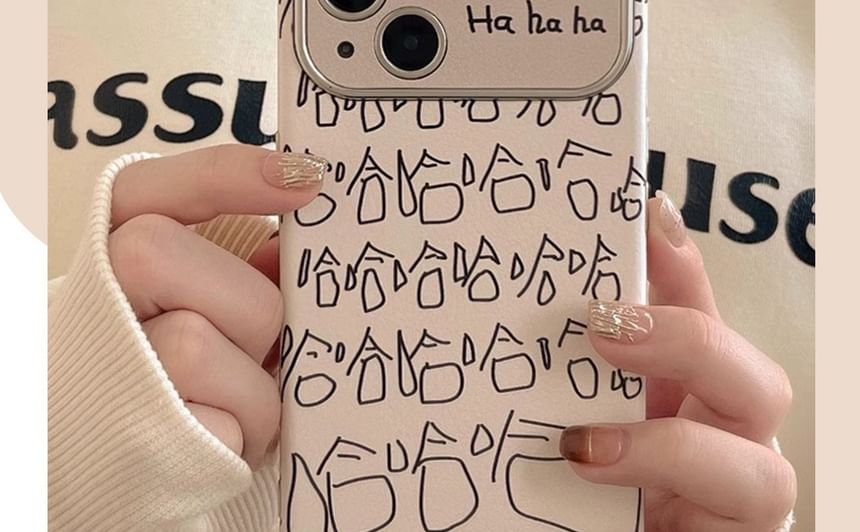 Ha ha ha
assu
use
哈哈哈哈哈哈
哈哈哈哈哈哈
哈哈哈哈哈哈
哈哈哈